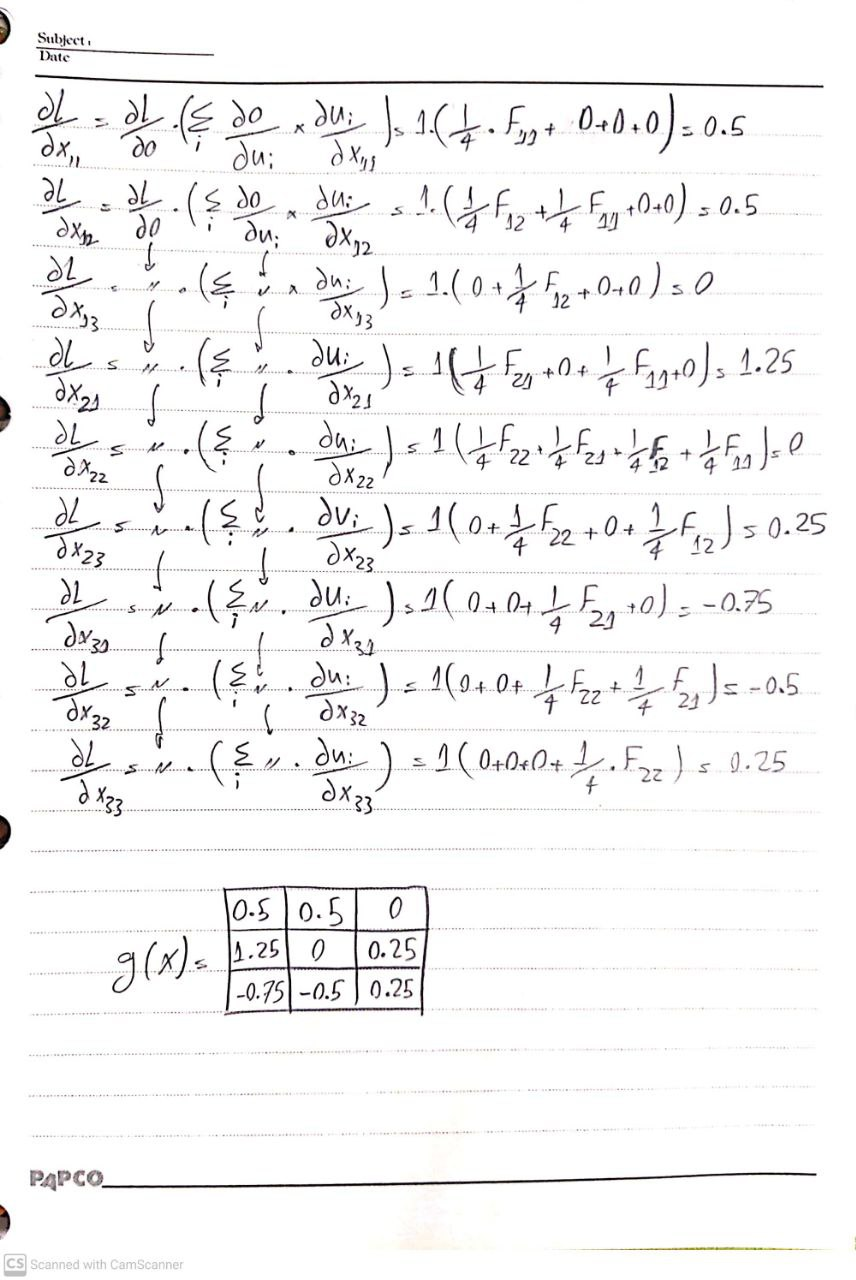 Subject :
Date
∂L/∂x₁₁ = ∂L/∂o · (Σᵢ ∂o/∂uᵢ × ∂uᵢ/∂x₁₁) = 1·(1/4 · F₁₁ + 0+0+0) = 0.5
∂L/∂x₁₂ = ∂L/∂o · (Σᵢ ∂o/∂uᵢ × ∂uᵢ/∂x₁₂ = 1·(1/4 F₁₂ + 1/4 F₁₁ + 0+0) = 0.5
∂L/∂x₁₃ = " · (Σᵢ " × ∂uᵢ/∂x₁₃) = 1·(0 + 1/4 F₁₂ + 0+0) = 0
∂L/∂x₂₁ = " · (Σᵢ " · ∂uᵢ/∂x₂₁) = 1(1/4 F₂₁ + 0 + 1/4 F₁₁ + 0) = 1.25
∂L/∂x₂₂ = " · (Σᵢ " · ∂uᵢ/∂x₂₂) = 1(1/4 F₂₂ + 1/4 F₂₁ + 1/4 F₁₂ + 1/4 F₁₁) = 0
∂L/∂x₂₃ = " · (Σᵢ " · ∂uᵢ/∂x₂₃) = 1(0 + 1/4 F₂₂ + 0 + 1/4 F₁₂) = 0.25
∂L/∂x₃₁ = " · (Σᵢ " · ∂uᵢ/∂x₃₁) = 1(0 + 0 + 1/4 F₂₁ + 0) = -0.75
∂L/∂x₃₂ = " · (Σᵢ " · ∂uᵢ/∂x₃₂) = 1(0 + 0 + 1/4 F₂₂ + 1/4 F₂₁) = -0.5
∂L/∂x₃₃ = " · (Σᵢ " · ∂uᵢ/∂x₃₃) = 1(0+0+0+ 1/4 · F₂₂) = 0.25
0.5 0.5 0
g(x) = 1.25 0 0.25
-0.75 -0.5 0.25
PAPCO
CS Scanned with CamScanner